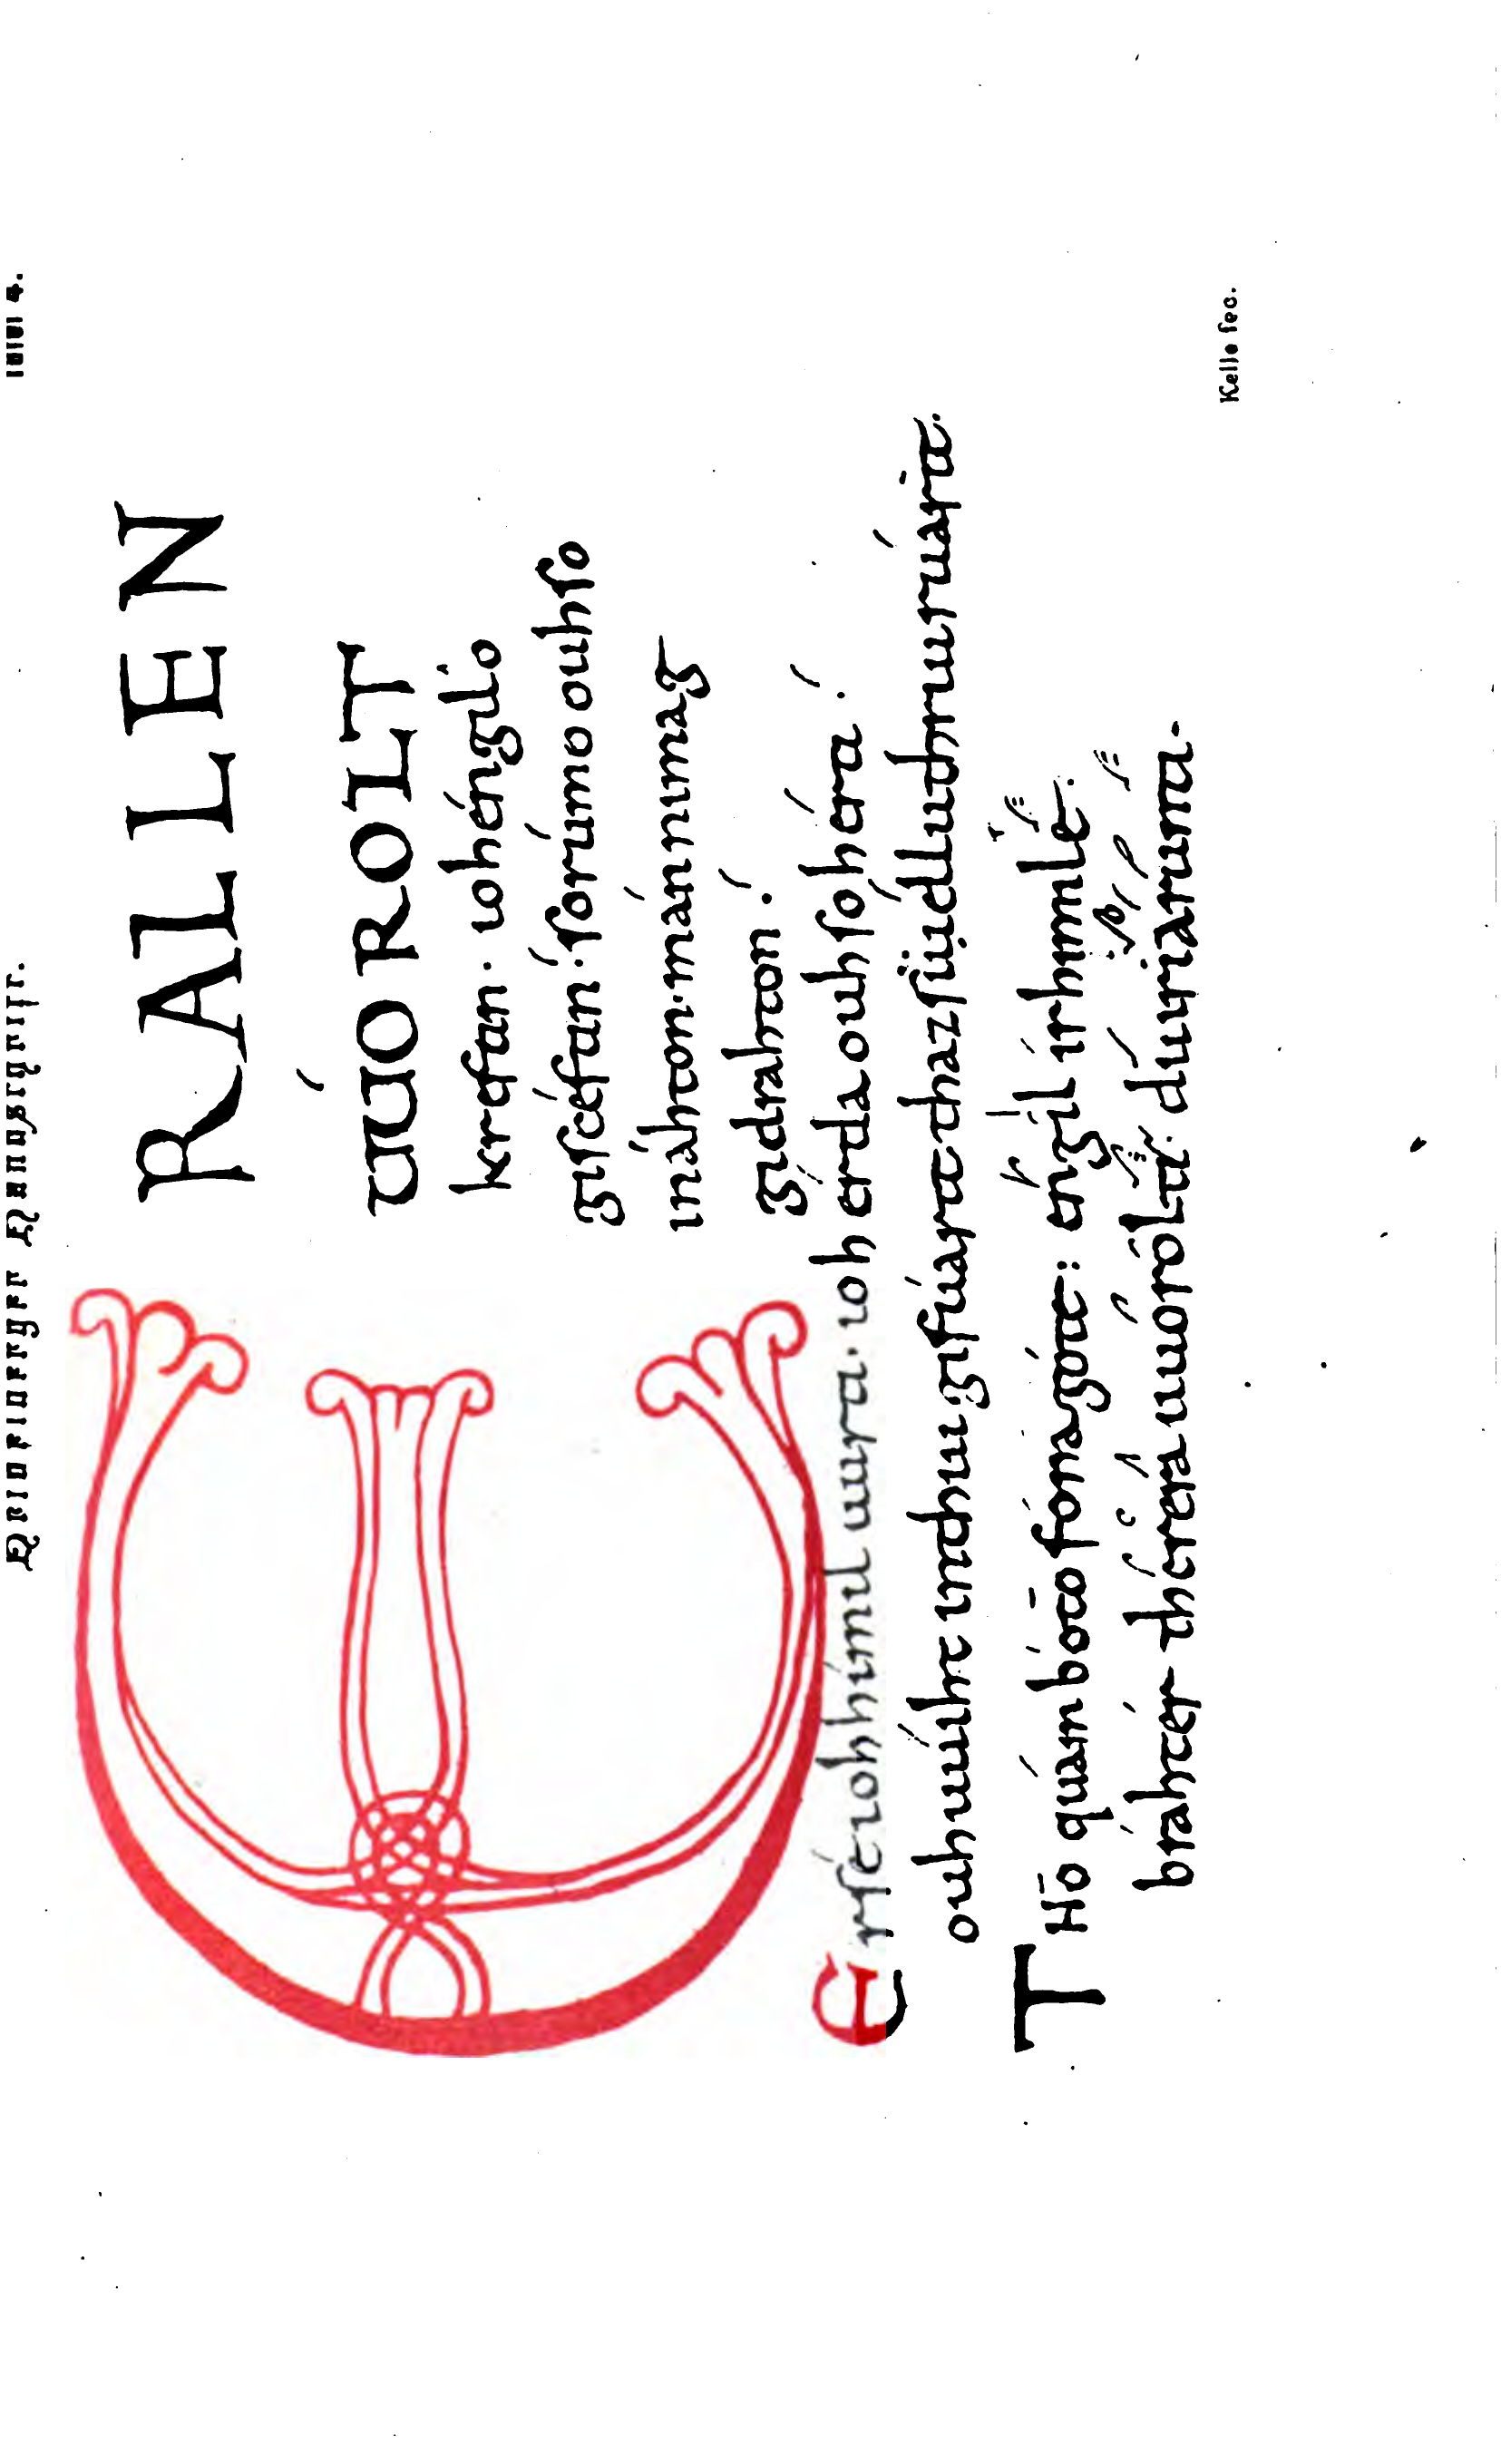 ERALLEN
UUÓROLT
kreftin. ioh éngilo
giscéftin. so rúmo ouh so
in áhton. mán ni mag
gidrahton.
Er sé ioh hímil uurti. ioh érda ouh so hérti.
ouh uuiht in thiu gifúarti thaz siu ellu thriu rúarti.
THo quám bóto fona góte: éngil ír himile.
bráht er thérera uuórolti: diuri árunti.
Kelle fec.